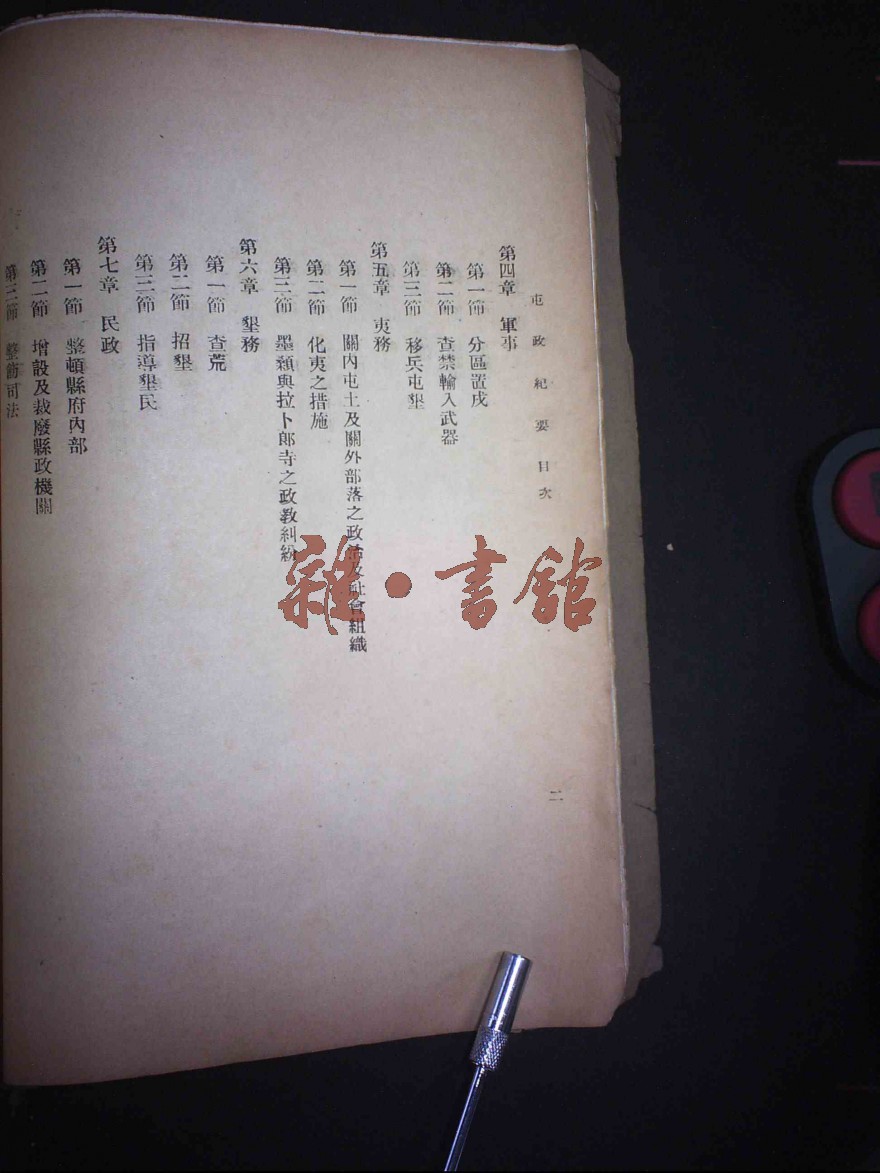 屯政紀要目次
二
第四章 軍事
第一節 分區置戍
第二節 查禁輸入武器
第三節 移兵屯墾
第五章 夷務
第一節 關內屯土及關外部落之政治及社會組織
第二節 化夷之措施
第三節 墨顙與拉卜郎寺之政教糾紛
第六章 墾務
第一節 查荒
第二節 招墾
第三節 指導墾民
第七章 民政
第一節 整頓縣府內部
第二節 增設及裁廢縣政機關
第三節 整飭司法
雜·書館